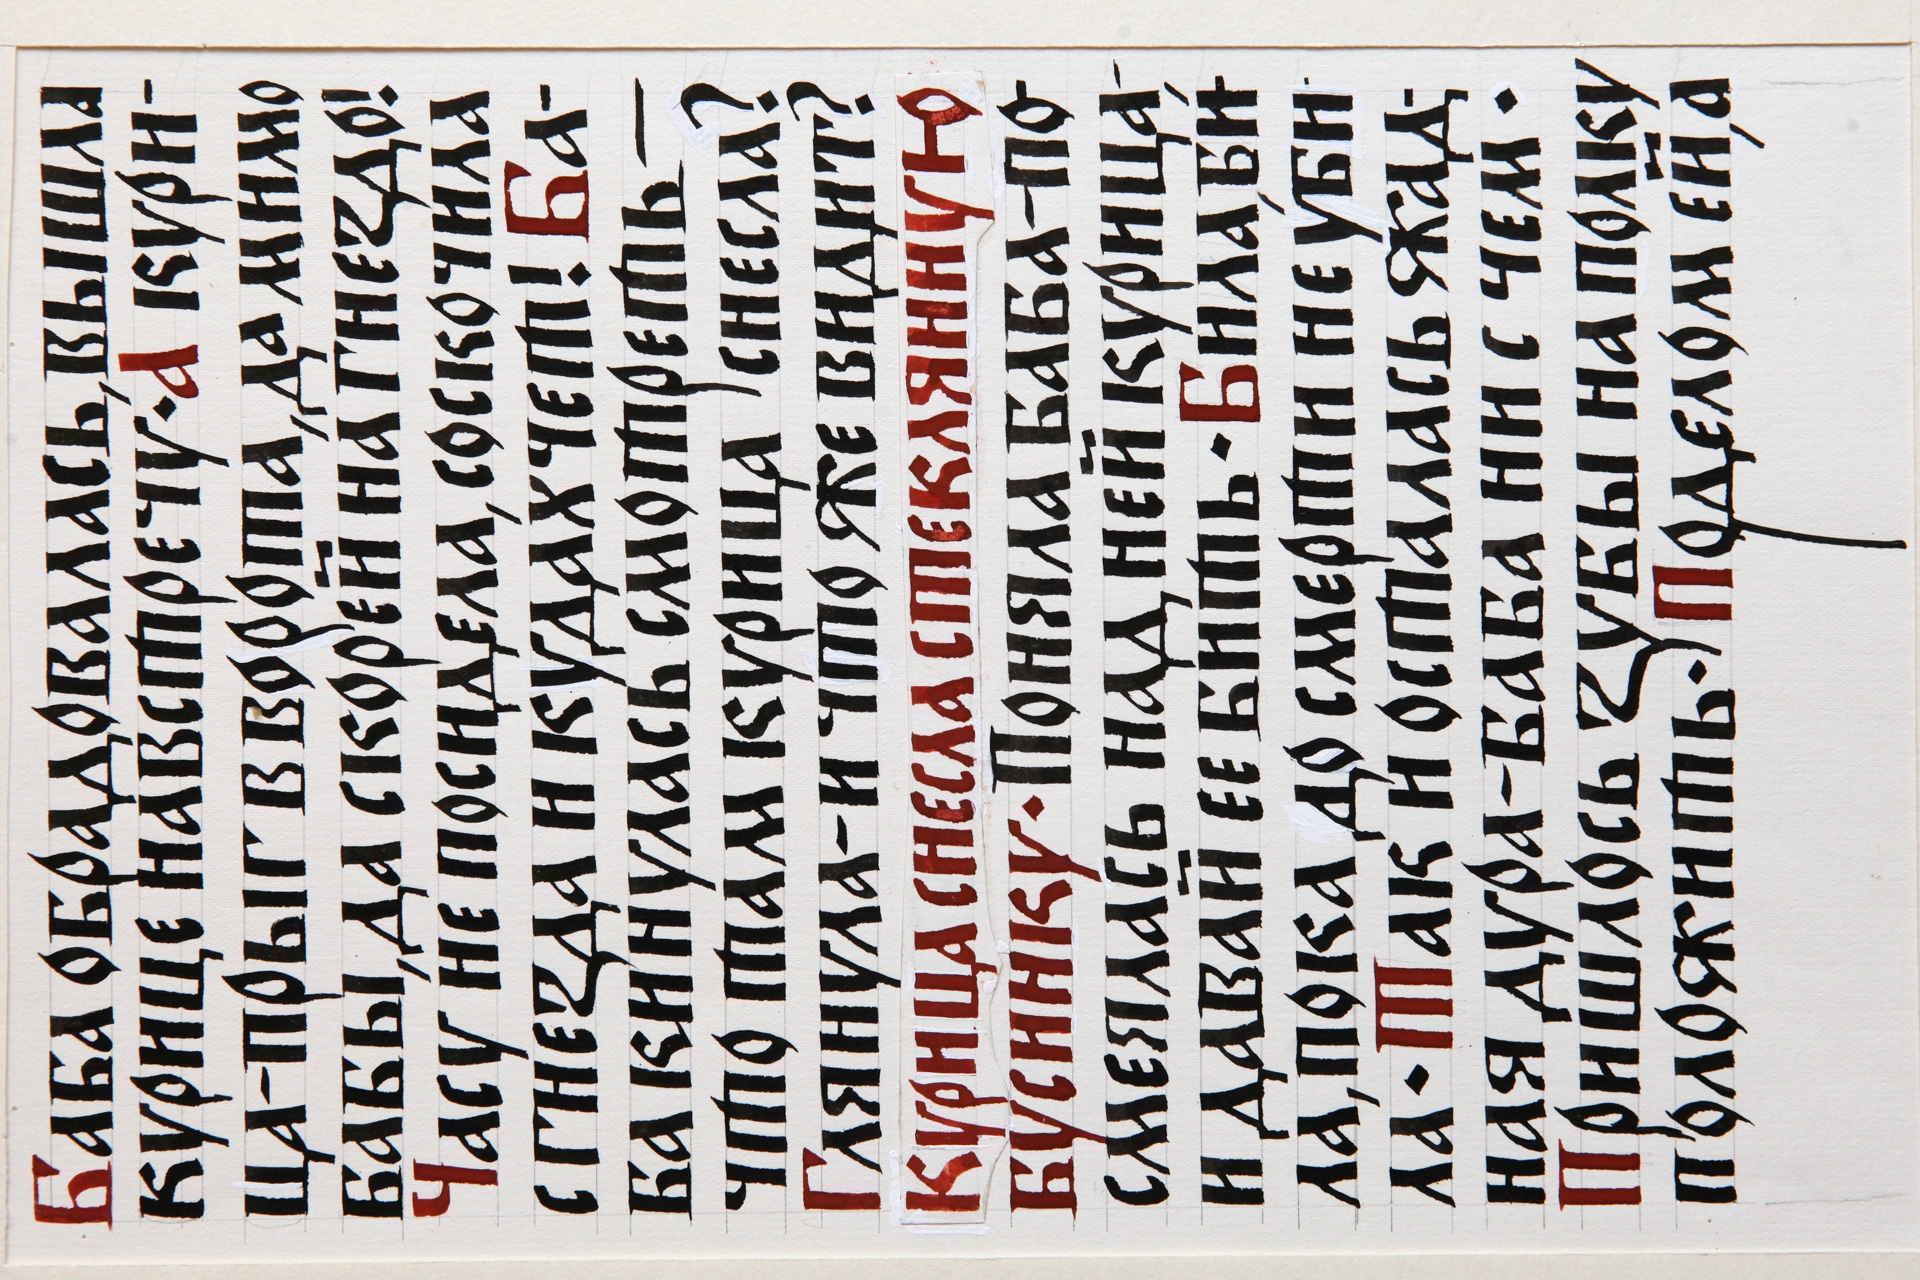 Баба обрадовалась, вышла
курице навстречу. А кури-
ца-прыг в ворота, да мимо
бабы, да скорей на гнездо!
Часу не посидела, соскочила
с гнезда и кудахчет! Ба-
ба кинулась смотреть —
что там курица снесла?
Глянула-и что же видит?
Курица снесла стеклянную
бусинку. Поняла баба-по-
смеялась над ней курица,
и давай ее бить. Била, би-
ла, пока до смерти не уби-
ла. Так и осталась жад-
ная дура-баба ни с чем.
Пришлось зубы на полку
положить. Поделом ей,а